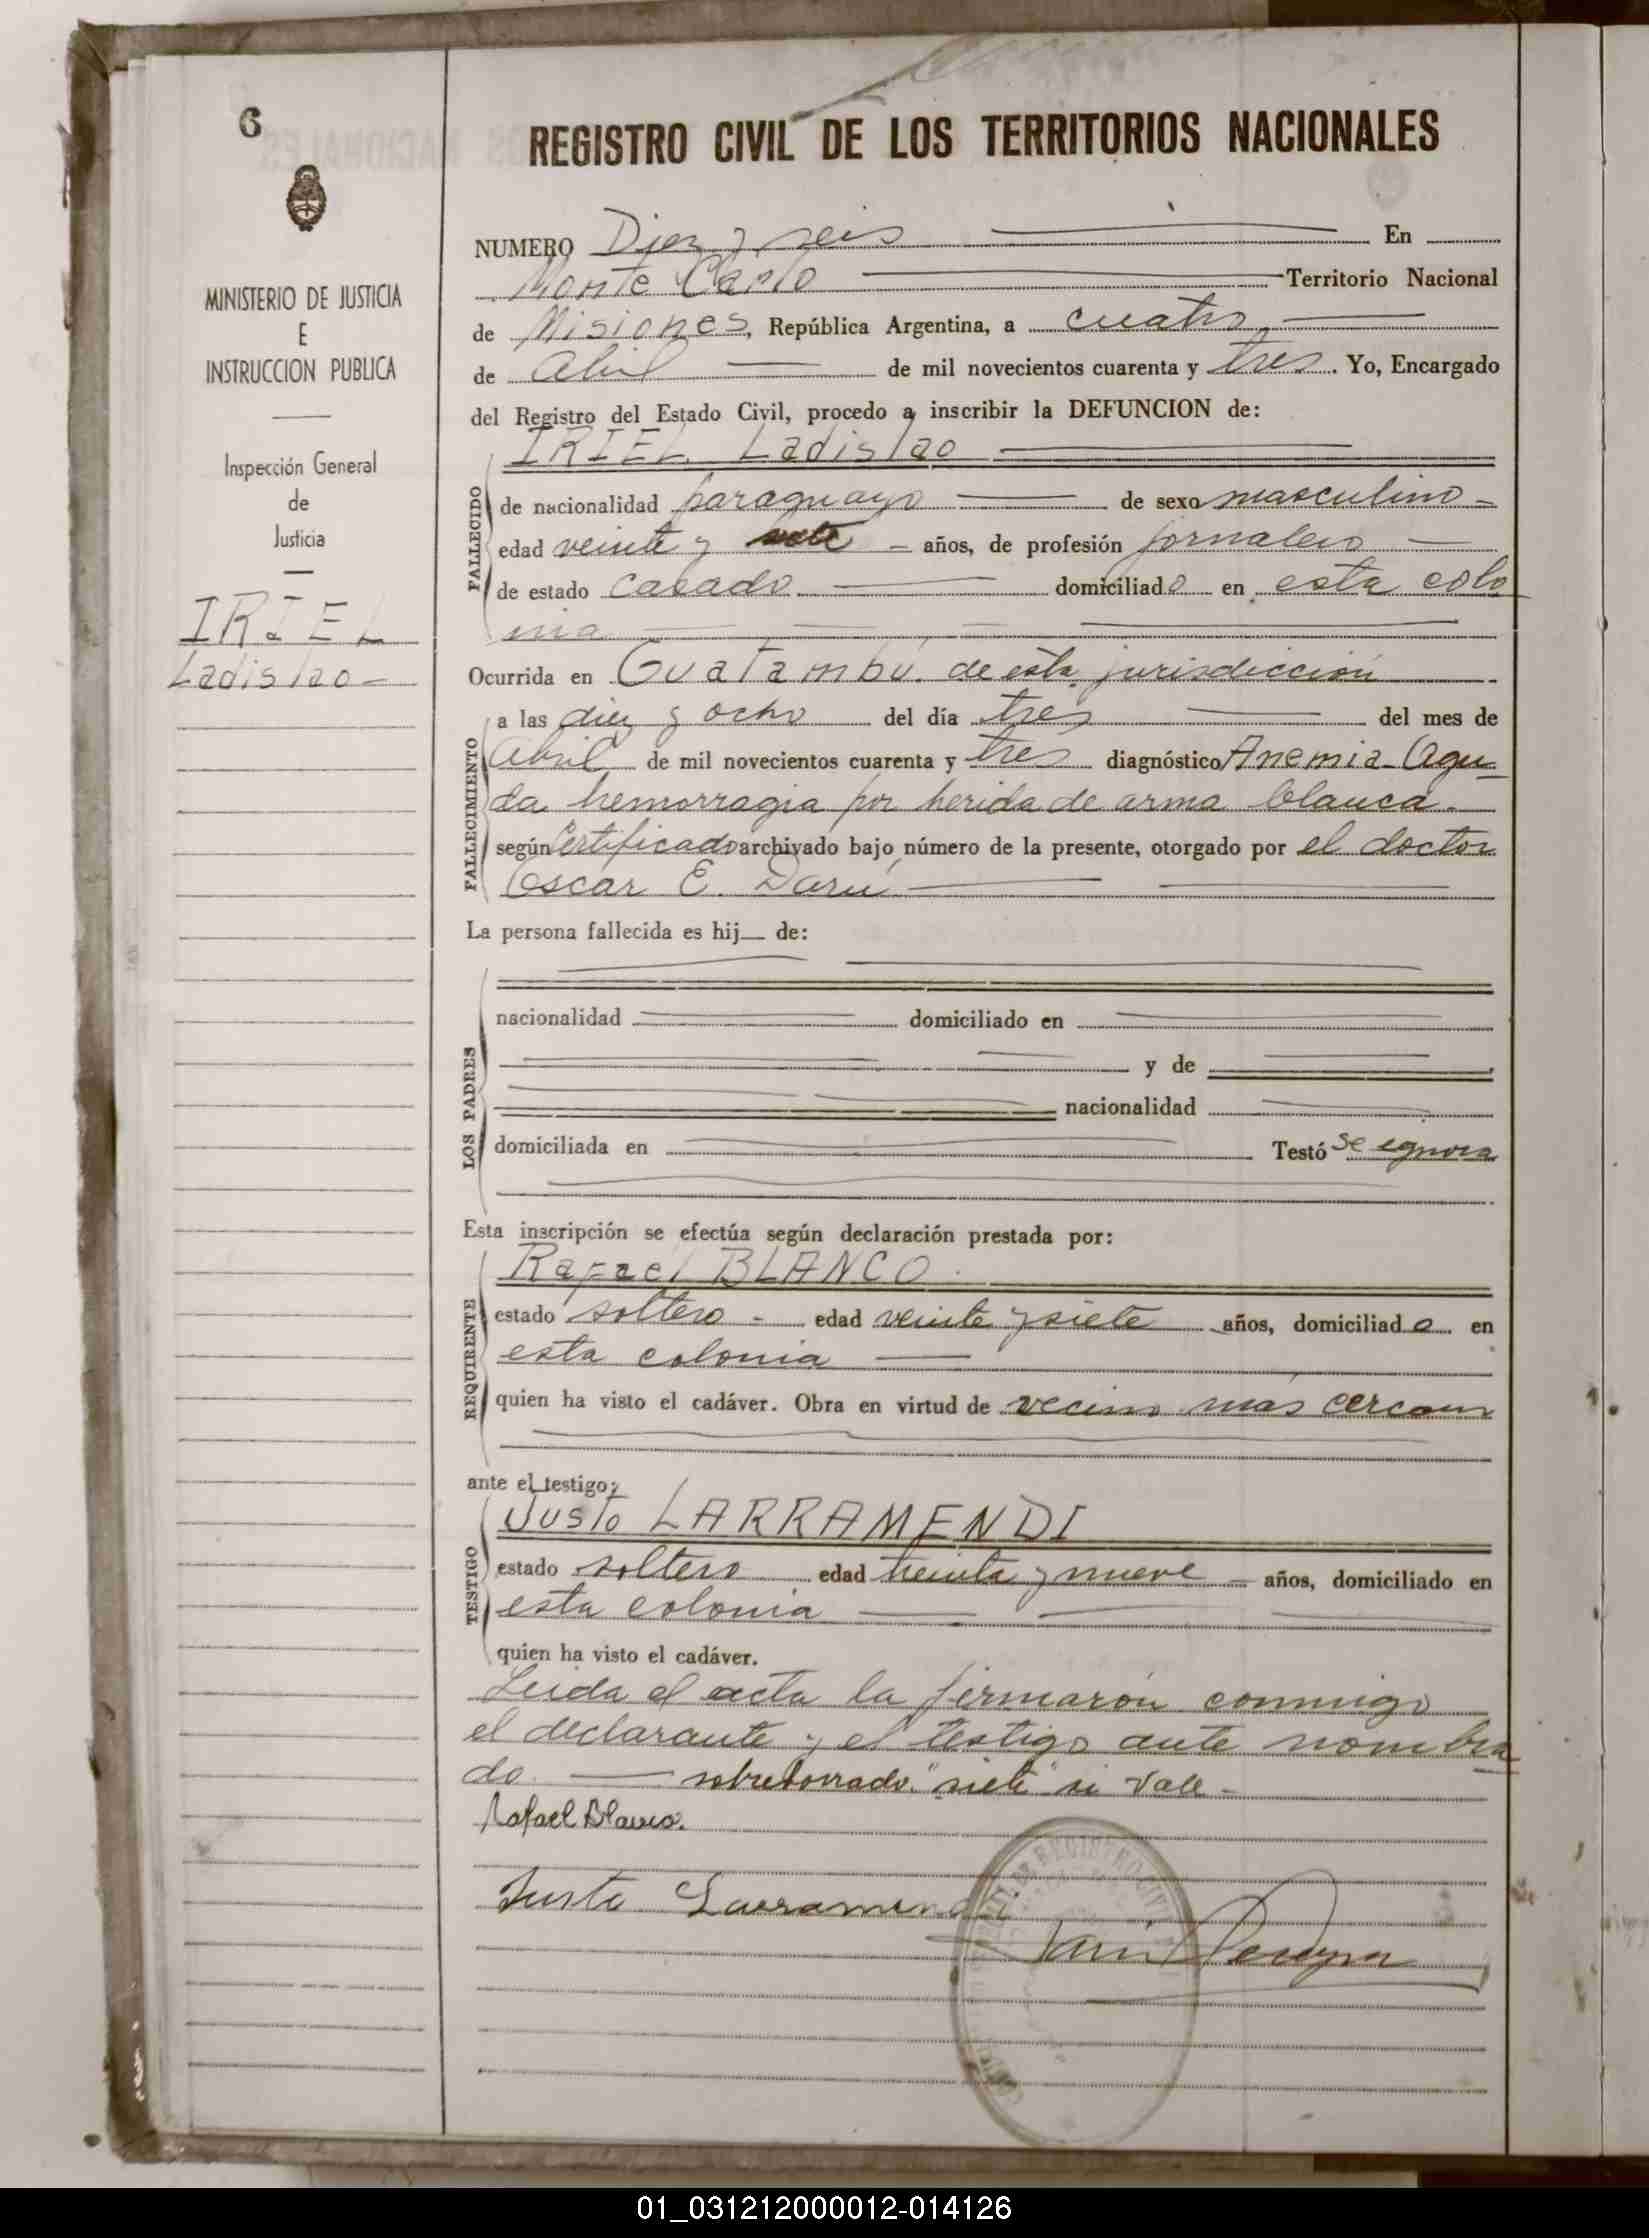 6
MINISTERIO DE JUSTICIA
E
INSTRUCCION PUBLICA
Inspección General
de
Justicia
IRIEL
Ladislao -
REGISTRO CIVIL DE LOS TERRITORIOS NACIONALES
NUMERO Diez y seis En
Monte Carlo Territorio Nacional
de Misiones, República Argentina, a cuatro
de Abril de mil novecientos cuarenta y tres. Yo, Encargado
del Registro del Estado Civil, procedo a inscribir la DEFUNCION de:
IRIEL Ladislao
FALLECIDO
de nacionalidad paraguayo de sexo masculino -
edad veinte y siete - años, de profesión jornalero
de estado casado domiciliado en esta colo
nia
Ocurrida en Guatambú de esta jurisdicción
FALLECIMIENTO
a las diez y ocho del día tres del mes de
Abril de mil novecientos cuarenta y tres diagnóstico Anemia Agu-
da hemorragia por herida de arma blanca.
según Certificado archivado bajo número de la presente, otorgado por el doctor
Oscar E. Darú
La persona fallecida es hij de:
LOS PADRES
nacionalidad domiciliado en
y de
nacionalidad
domiciliada en Testó se ignora
Esta inscripción se efectúa según declaración prestada por:
Rafael BLANCO.
REQUIRENTE
estado soltero - edad veinte y siete años, domiciliado en
esta colonia
quien ha visto el cadáver. Obra en virtud de vecino más cercano
ante el testigo:
Justo LARRAMENDI
TESTIGO
estado soltero edad treinta y nueve - años, domiciliado en
esta colonia
quien ha visto el cadáver.
Leida el acta la firmarón conmigo
el declarante y el testigo ante nombra
do. sobreborrado "siete" si vale -
Rafael Blanco.
Justo Larramendi
REGISTRO CIVIL
01_031212000012-014126